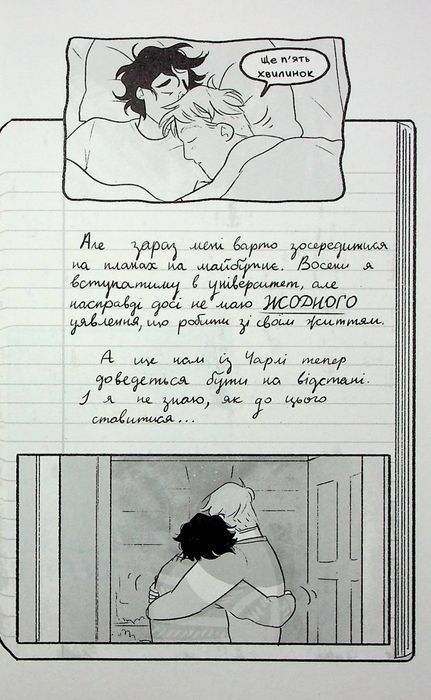 Ще п'ять
хвилинок
Але зараз мені варто зосередитися
на планах на майбутнє. Восени я
вступатиму в університет, але
насправді досі не маю ЖОДНОГО
уявлення, що робити зі своїм життям.
А ще нам із Чарлі тепер
доведеться бути на відстані.
І я не знаю, як до цього
ставитися...